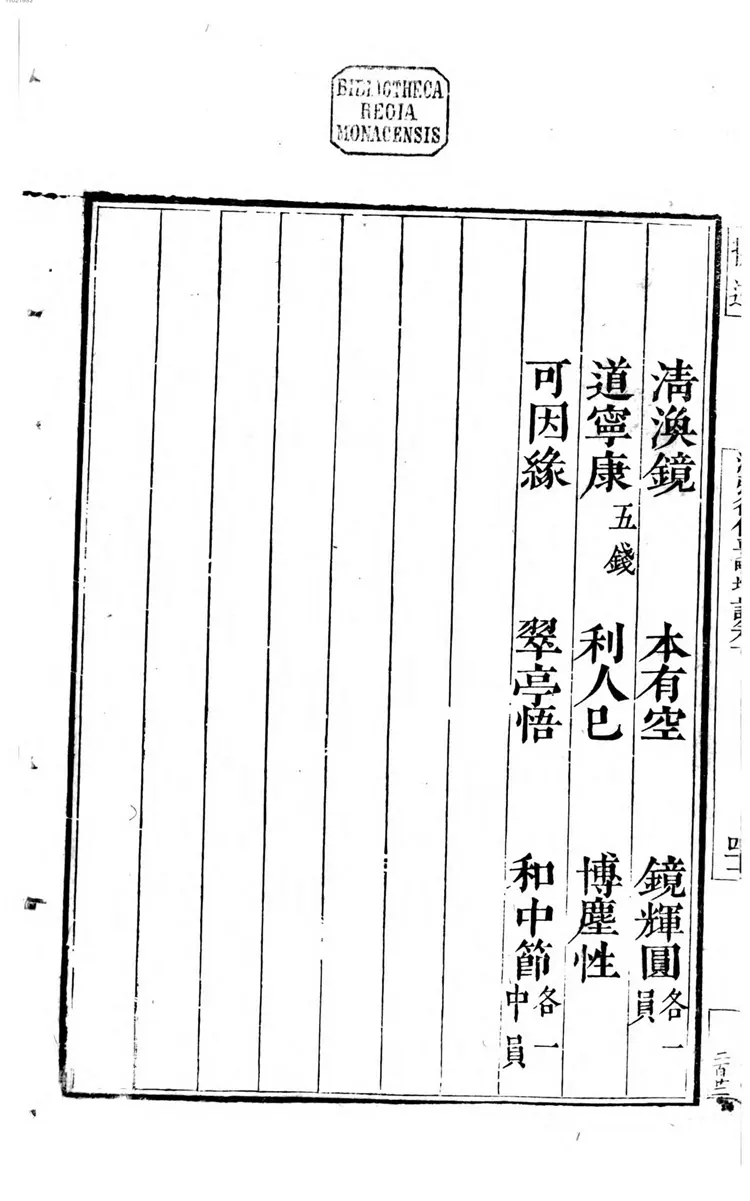 11021993
BIBLIOTHECA
REGIA
MONACENSIS
清渙鏡 本有空 鏡輝圓 各一員
道寧康 五錢 利人已 博塵性
可因緣 翠亭悟 和中節 各一中員